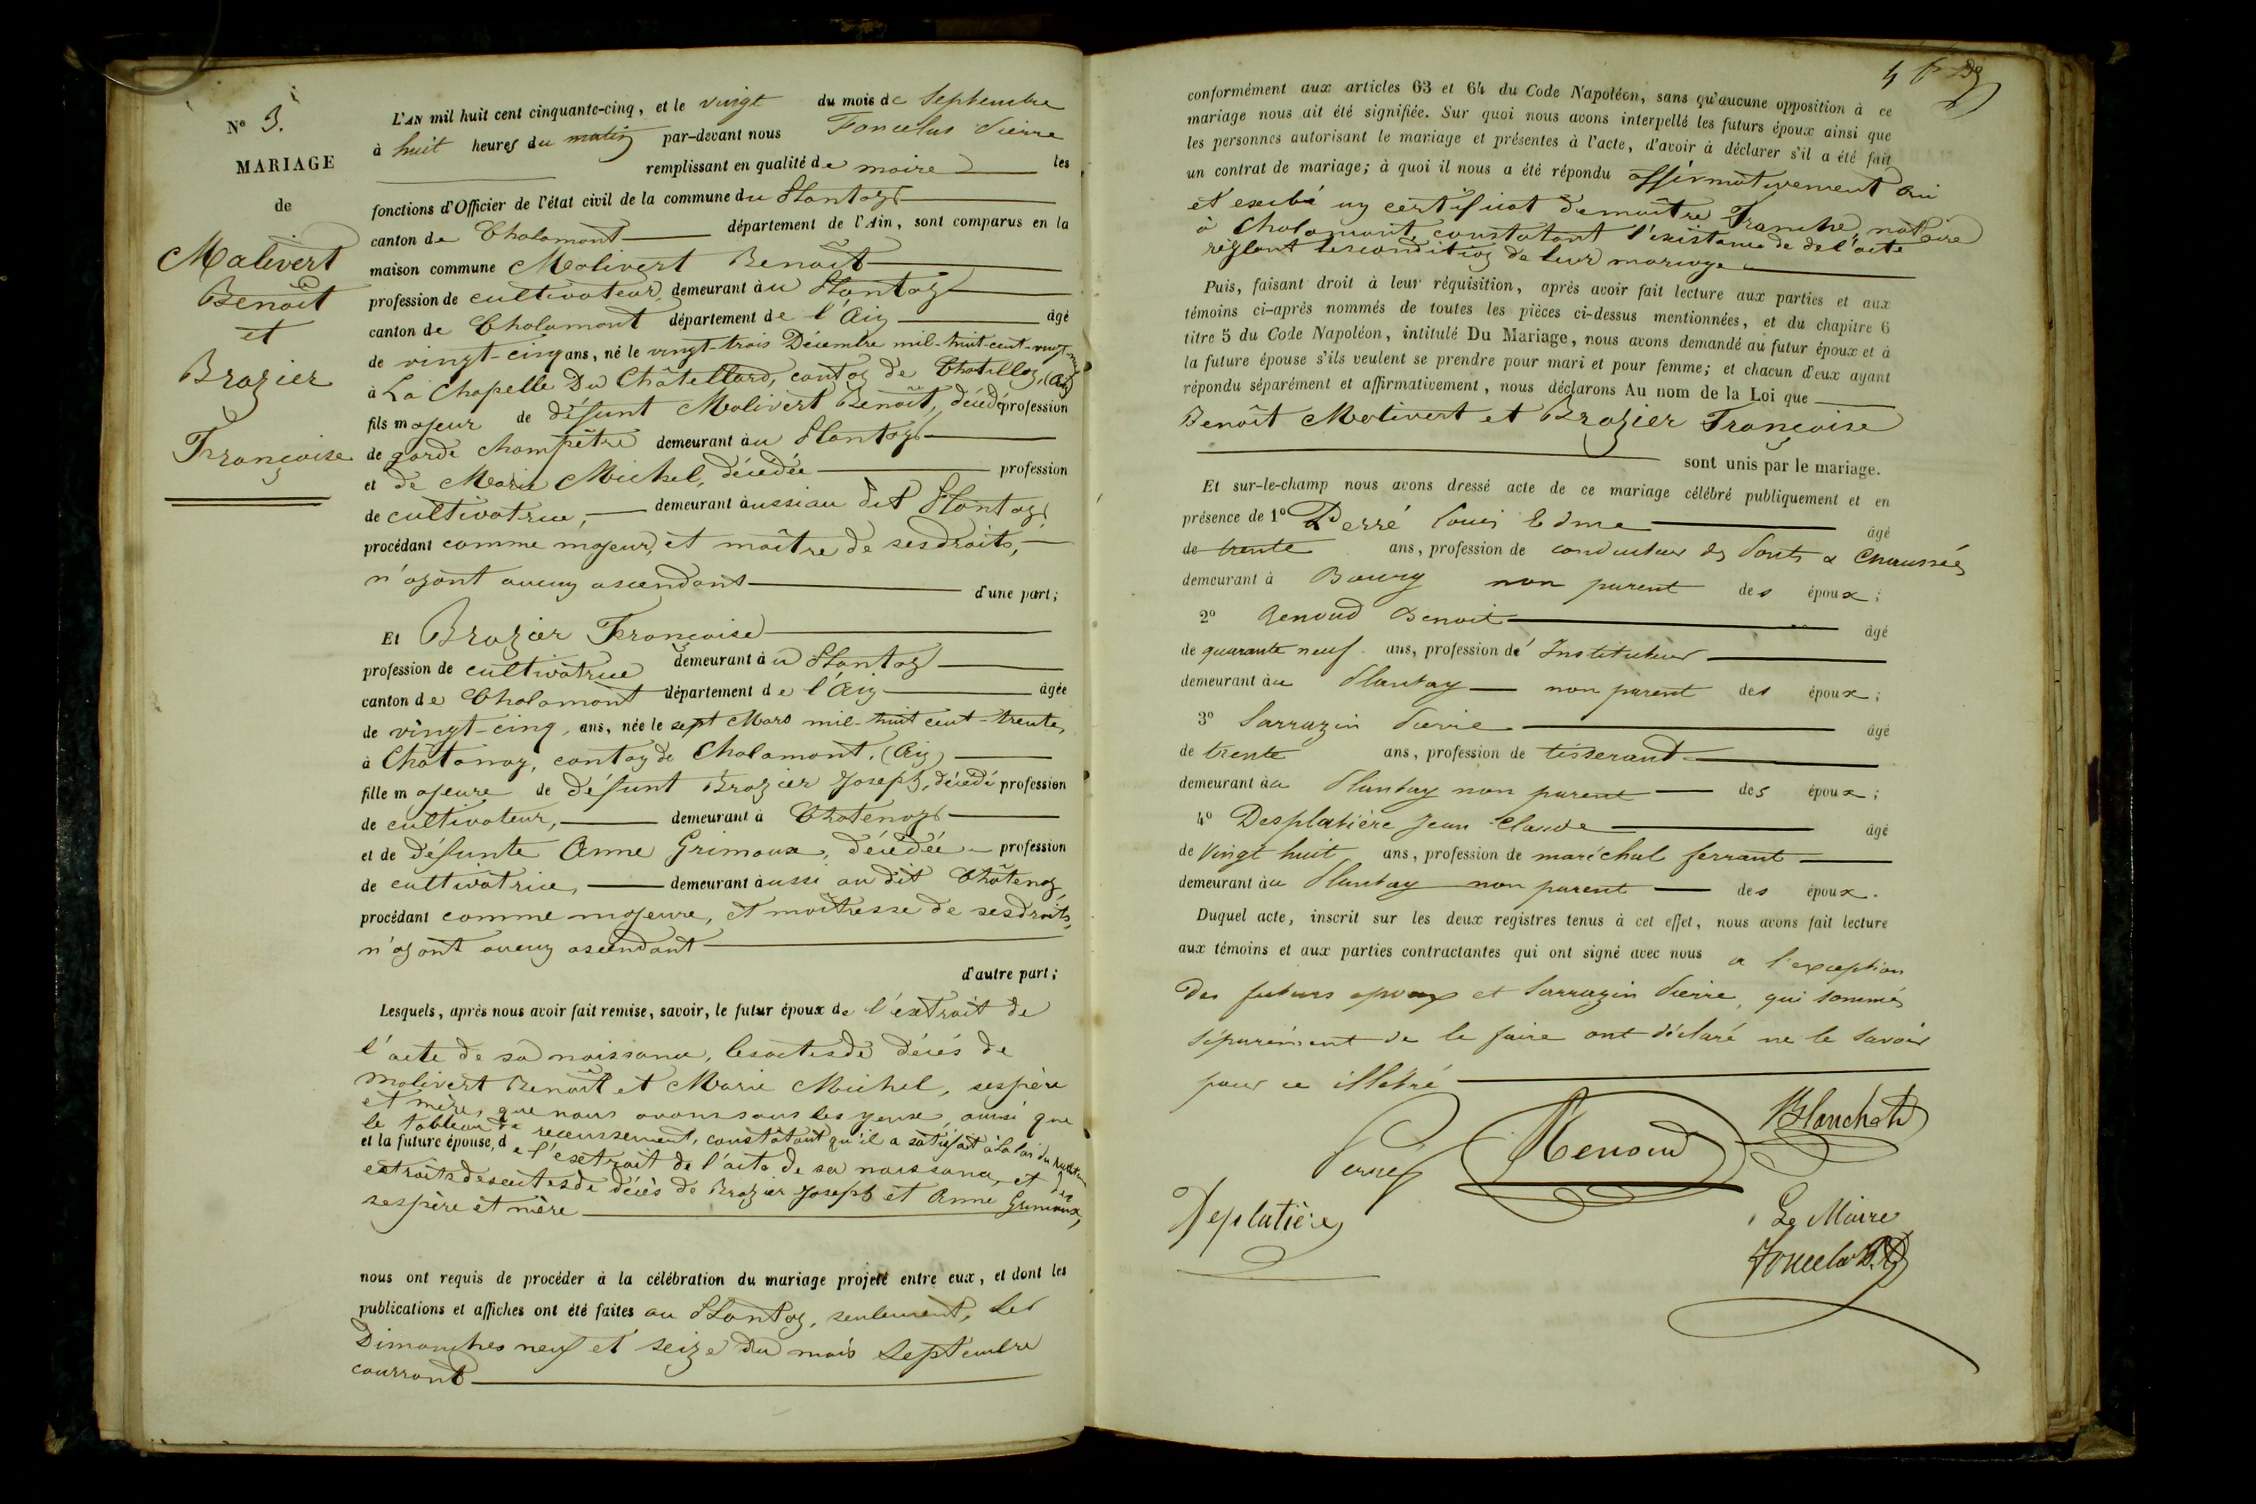 N° 3.
MARIAGE
de
Malivert
Benoît
et
Brazier
Françoise
L'AN mil huit cent cinquante-cinq, et le vingt du mois de Septembre
à huit heures du matin par-devant nous Foncelus Pierre
remplissant en qualité de maire les
fonctions d'Officier de l'état civil de la commune du Plantay
canton de Chalamont département de l'Ain, sont comparus en la
maison commune Malivert Benoît
profession de cultivateur, demeurant au Plantay
canton de Chalamont département de l'Ain âgé
de vingt-cinq ans, né le vingt-trois Décembre mil-huit-cent-vingt-neuf
à La Chapelle Du Châtellard, canton de Chatillon, (Ain)
fils majeur de défunt Malivert Benoît, décédé profession
de garde champêtre demeurant au Plantay
et de Marie Michel, décédée profession
de cultivatrice, demeurant aussi au dit Plantay
procédant comme majeur, et maître de ses droits,
n'ayant aucun ascendants d'une part;
Et Brazier Françoise
profession de cultivatrice demeurant au Plantay
canton de Chalamont département de l'Ain âgée
de vingt-cinq, ans, née le sept Mars mil-huit cent-trente,
à Châtenay, canton de Chalamont, (Ain)
fille majeure de défunt Brazier Joseph, décédé profession
de cultivateur, demeurant à Chatenay
et de défunte Anne Grimaux, décédée profession
de cultivatrice, demeurant aussi au dit Châtenay
procédant comme majeure, et maîtresse de ses droits,
n'ayant aucun ascendant
d'autre part;
Lesquels, après nous avoir fait remise, savoir, le futur époux de l'extrait de
l'acte de sa naissance, les actes de décès de
Malivert Benoît et Marie Michel, ses père
et mère, que nous avons sous les yeux, ainsi que
le tableau de recensement, constatant qu'il a satisfait à la loi du
et la future épouse, de l'extrait de l'acte de sa naissance, et des
extraits des actes de décès de Brazier Joseph et Anne Grimaux,
ses père et mère
nous ont requis de procéder à la célébration du mariage projeté entre eux, et dont les
publications et affiches ont été faites au Plantay, seulement, les
Dimanches neuf et seize du mois Septembre
courrant
4
conformément aux articles 63 et 64 du Code Napoléon, sans qu'aucune opposition à ce
mariage nous ait été signifiée. Sur quoi nous avons interpellé les futurs époux ainsi que
les personnes autorisant le mariage et présentes à l'acte, d'avoir à déclarer s'il a été fait
un contrat de mariage; à quoi il nous a été répondu affirmativement oui
et exibé un certificat de maître Tranche, notaire
à Chalamont, constatant l'existance de de l'acte
réglant les condition de leur mariage
Puis, faisant droit à leur réquisition, après avoir fait lecture aux parties et aux
témoins ci-après nommés de toutes les pièces ci-dessus mentionnées, et du chapitre 6
titre 5 du Code Napoléon, intitulé Du Mariage, nous avons demandé au futur époux et à
la future épouse s'ils veulent se prendre pour mari et pour femme; et chacun d'eux ayant
répondu séparément et affirmativement, nous déclarons Au nom de la Loi que
Benoît Malivert et Brazier Françoise
sont unis par le mariage.
Et sur-le-champ nous avons dressé acte de ce mariage célébré publiquement et en
présence de 1° Perré Louis Edme âgé
de trente ans, profession de conducteur des Ponts & Chaussées
demeurant à Bourg non parent des époux;
2° Renoud Benoit âgé
de quarante neuf ans, profession d'Instituteur
demeurant au Plantay non parent des époux;
3° Sarrazin Pierre âgé
de trente ans, profession de tisserand
demeurant au Plantay non parent des époux;
4° Desplatière Jean Claude âgé
de Vingt huit ans, profession de maréchal ferrant
demeurant au Plantay non parent des époux.
Duquel acte, inscrit sur les deux registres tenus à cet effet, nous avons fait lecture
aux témoins et aux parties contractantes qui ont signé avec nous a l'exception
des futurs epoux et Sarrazin Pierre, qui sommés
séparément de le faire ont déclaré ne le savoir
pour ce illétré
Perré Renoud Blanchet
Deplatière
Le Maire
Foncelus